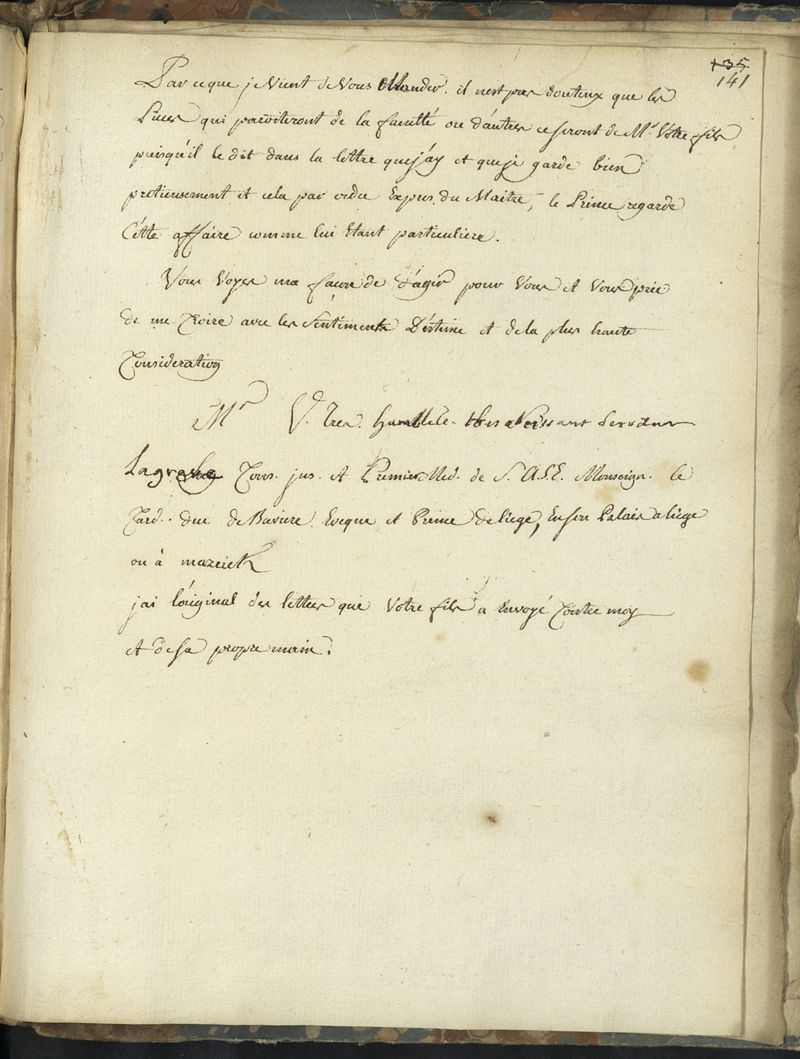 135
141
Par ceque je Vient de Vous Mander. il nest pas douteux que les
Pieces qui paroiteront de la faculté ou d'autres ce seront de Mr. Votre fils
puisqu'il le dit dans la lettre que j'ay et que je garde bien
pretieusement et cela par ordre Expres du Maitre, le Prince regarde
Cétte affaire comme lui Etant particuliere.
Vous Voyes ma facon de d'agir pour Vous et Vous prie
de me Croire avec les Sentiments D'estime et de la plus haute
Consideration
Mr V. Tres humble. obeissant Serviteur
Cons. jus. et Premier Med. de S. A. S. E. Monseign. le
Card. duc de Baviere. Eveque et Prince de liege, En son Palais a liege
ou à mazeick
jai l'original des lettres que Votre fils a Envoyé Contre moy
et de sa propre main.